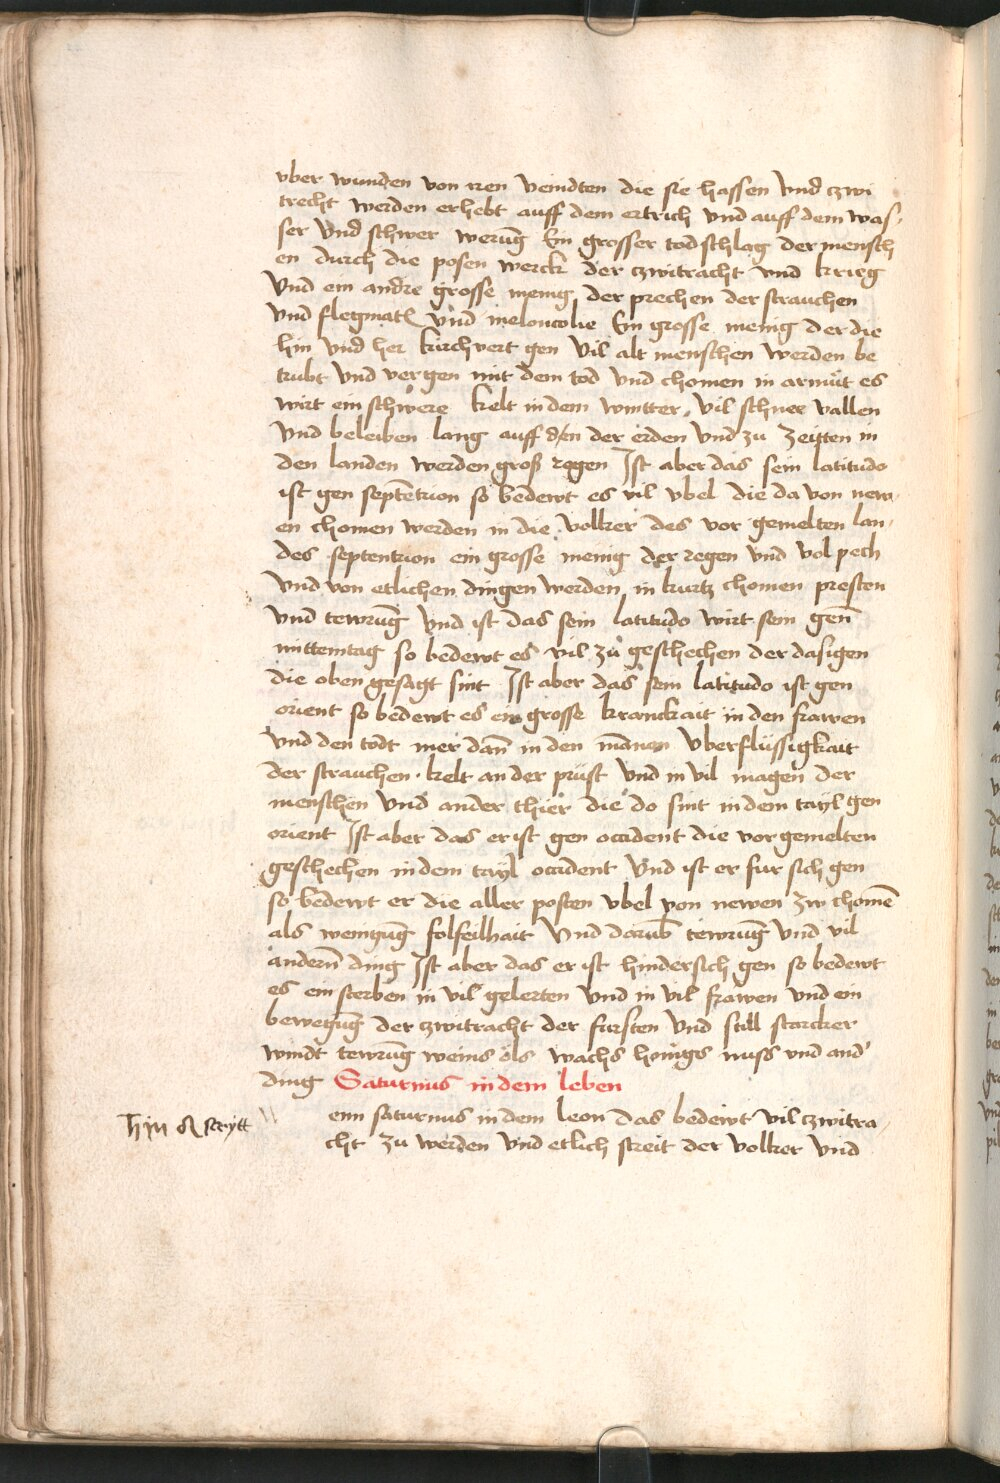 vber wunden von iren veindten die sie hassen vnd czwi
trecht werden erhebt auff dem ertrich vnd auff dem was-
ser vnd schwer werūg Ein grosser todschlag der mensch
en durch die posen werck der czwitracht vnd krieg
vnd ein andre grosse menig der prechen der strauchen
vnd flegmatꝭ vnd meloncolie Ein grosse menig der die
hin vnd her kirchvert gen vil alt menschen werden be
trubt vnd vergen mit dem tod vnd chomen in armůt es
wirt ein schwere kelt in dem wintter vil schnee vallen
vnd beleiben lang auff der erden vnd zu zeitten in
den landen werden groß regen Ist aber das sein latitudo
ist gen septētrion so bedewt es vil vbel die da von new-
en chomen werden in die volker des vor gemelten lan-
des septentrion ein grosse menig der regen vnd vol pech
vnd von etlichen dingen werden in kurtz chomen presten
vnd tewrūg vnd ist das sein latitudo wirt sein gen̄
mittemtag so bedewt es vil zů geschechen der dasigen
die oben gesagt sint Ist aber das sein latitudo ist gen
orient so bedewt es ein grosse kranckait in den frawen
vnd den todt mer dan̄ in den mānen vberflüssigkait
der strauchen kelt an der prüst vnd in vil magen der
menschen vnd ander thier die do sint in dem tayl gen
orient Ist aber das er ist gen occident die vorgemelten
geschechen in dem tayl occident vnd ist er fur sich gen
so bedewt er die aller posten vbel von newen zw chomē
als wenigūg folfeilhait vnd darub̄ tewrūg vnd vil
andern̄ ding Ist aber das er ist hindersich gen so bedewt
es ein sterben in vil gelerten vnd in vil frawen vnd ein
bewegūg der czwitracht der fursten vnd still starcker
windt tewrūg weins öls wachs honigs nuss vnd and'
ding Saturnus in dem leben
enn saturnus in dem leon das bedewt vil czwitra-
cht zu werden vnd etlich streit der volker vnd